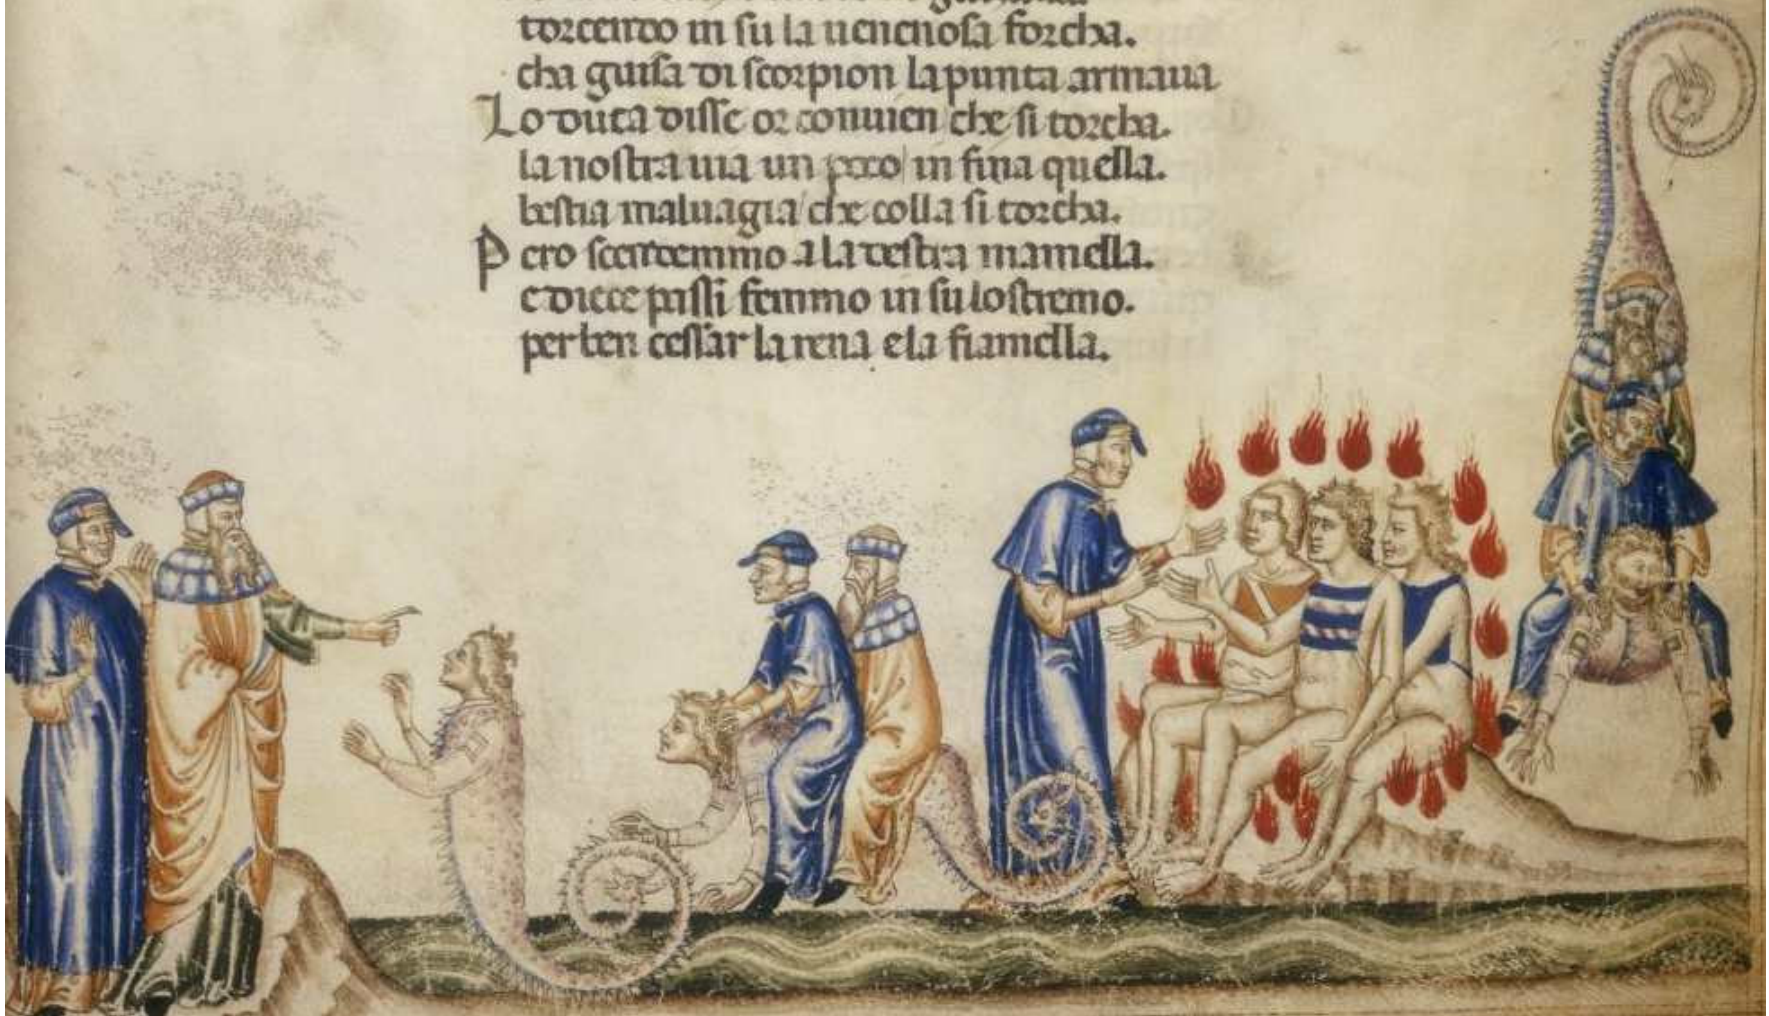 torcendo in su la uenenosa forcha.
cha guisa di scorpion la punta armaua
Lo duca disse or conuien che si torcha.
la nostra uia un poco in fina quella.
bestia maluagia che colla si torcha.
Pero scendemmo a la destra mamella.
e diece passi femmo in su lo stremo.
per ben cessar la rena e la fiamella.